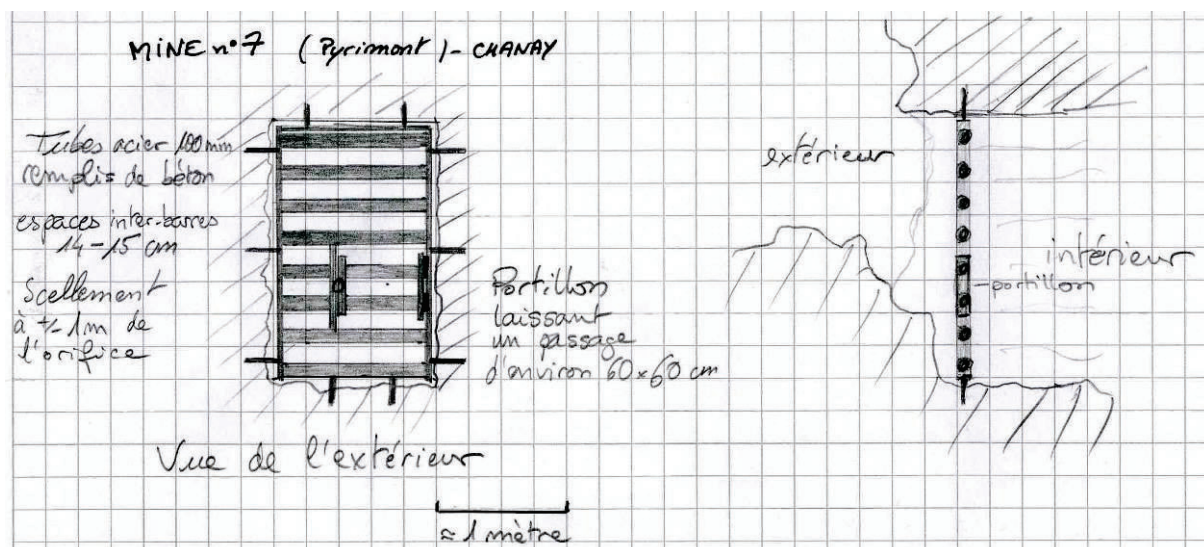 MINE n°7 (Pyrimont) - CHANAY
Tubes acier 100mm
remplis de béton
espaces inter-barres
14-15 cm
Scellement
à +/- 1m de
l'orifice
Portillon
laissant
un passage
d'environ 60x60 cm
Vue de l'extérieur
≈ 1 mètre
extérieur
intérieur
portillon